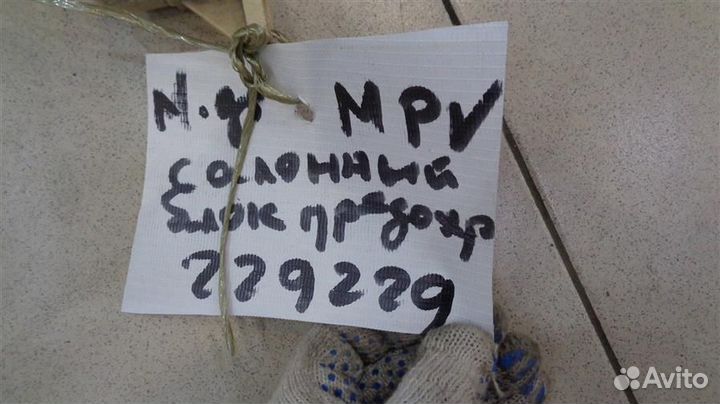 М.Ф. MPV
Салонный
Блок предохр
229229
Avito